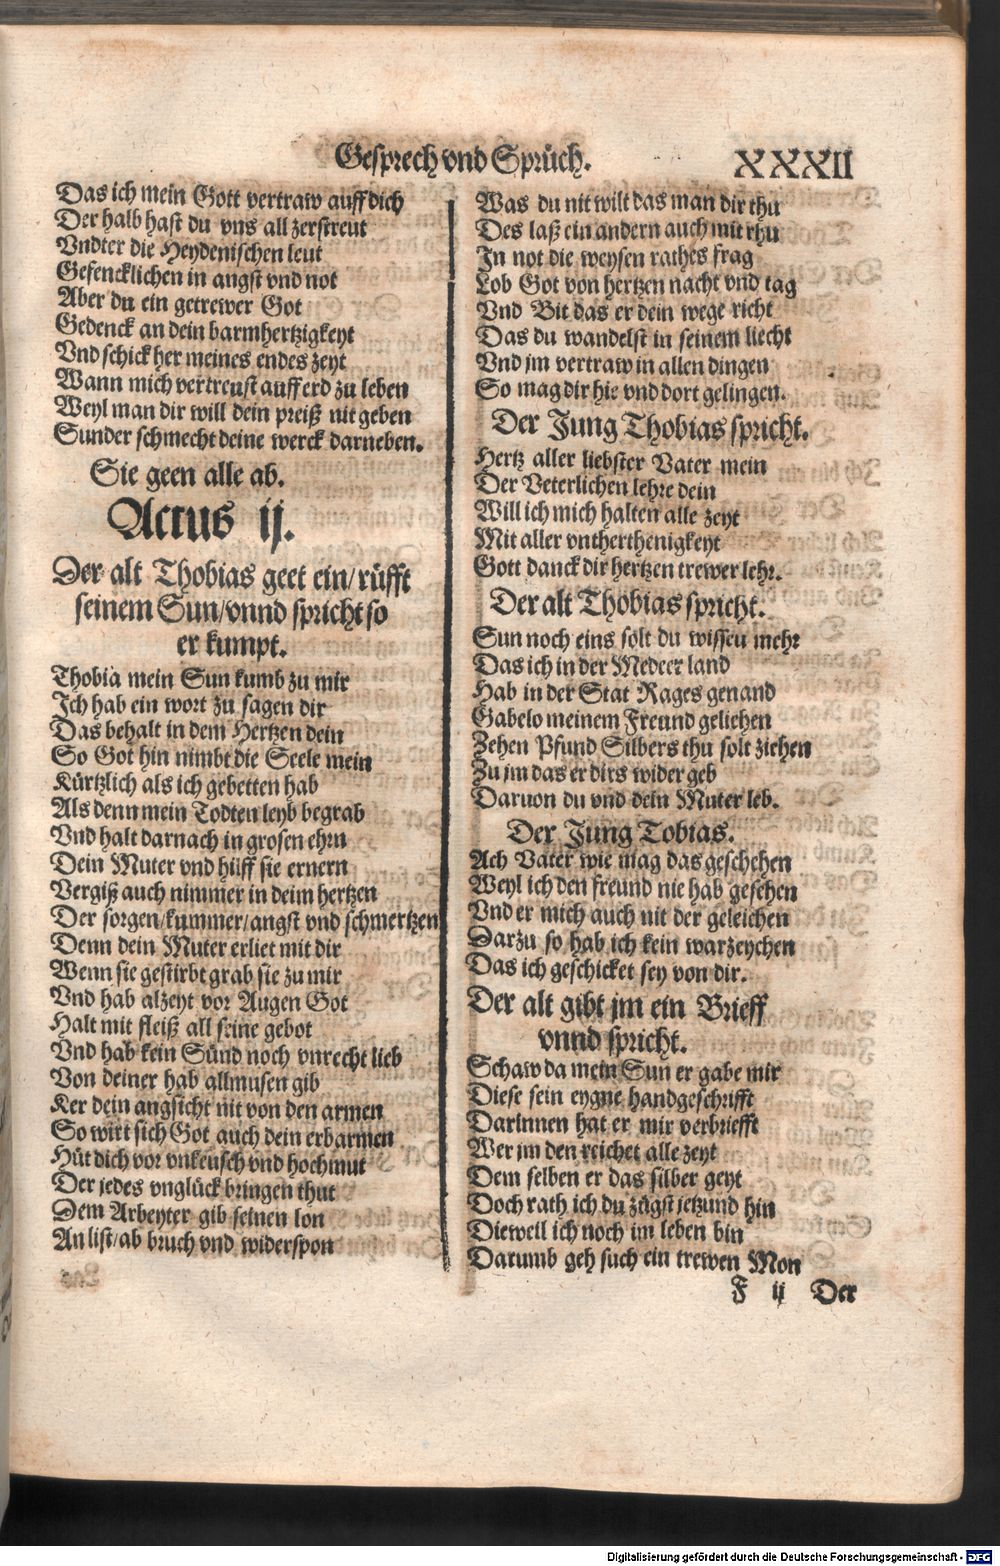 Gesprech vnd Sprüch. XXXII
Das ich mein Gott vertraw auff dich
Der halb hast du vns all zerstreut
Vndter die Heydenischen leut
Gefencklichen in angst vnd not
Aber du ein getrewer Got
Gedenck an dein barmhertzigkeyt
Vnd schick her meines endes zeyt
Wann mich vertreust auff erd zu leben
Weyl man dir will dein preiß nit geben
Sunder schmecht deine werck darneben.
Sie geen alle ab.
Actus ij.
Der alt Thobias geet ein/ rüfft
seinem Sun/ vnnd spricht so
er kumpt.
Thobia mein Sun kumb zu mir
Ich hab ein wort zu sagen dir
Das behalt in dem Hertzen dein
So Got hin nimbt die Seele mein
Kürtzlich als ich gebetten hab
Als denn mein Todten leyb begrab
Vnd halt darnach in grosen ehrn
Dein Muter vnd hilff sie ernern
Vergiß auch nimmer in deim hertzen
Der sorgen/ kummer/ angst vnd schmertzen
Denn dein Muter erliet mit dir
Wenn sie gestirbt grab sie zu mir
Vnd hab alzeyt vor Augen Got
Halt mit fleiß all seine gebot
Vnd hab kein Sünd noch vnrecht lieb
Von deiner hab allmusen gib
Ker dein angsicht nit von den armen
So wirt sich Got auch dein erbarmen
Hüt dich vor vnkeusch vnd hochmut
Der jedes vnglück bringen thut
Dem Arbeyter gib seinen lon
An list/ ab bruch vnd widerspon
Was du nit wilt das man dir thu
Des laß ein andern auch mit rhu
In not die weysen rathes frag
Lob Got von hertzen nacht vnd tag
Vnd Bit das er dein wege richt
Das du wandelst in seinem liecht
Vnd jm vertraw in allen dingen
So mag dir hie vnd dort gelingen.
Der Jung Thobias spricht.
Hertz aller liebster Vater mein
Der Veterlichen lehre dein
Will ich mich halten alle zeyt
Mit aller vntherthenigkeyt
Gott danck dir hertzen trewer lehr.
Der alt Thobias spricht.
Sun noch eins solt du wissen mehr
Das ich in der Medeer land
Hab in der Stat Rages genand
Gabelo meinem Freund geliehen
Zehen Pfund Silbers thu solt ziehen
Zu jm das er dirs wider geb
Daruon du vnd dein Muter leb.
Der Jung Tobias.
Ach Vater wie mag das geschehen
Weyl ich den freund nie hab gesehen
Vnd er mich auch nit der geleichen
Darzu so hab ich kein warzeychen
Das ich geschicket sey von dir.
Der alt gibt jm ein Brieff
vnnd spricht.
Schaw da mein Sun er gabe mir
Diese sein eygne handgeschrifft
Darinnen hat er mir verbriefft
Wer jm den reichet alle zeyt
Dem selben er das silber geyt
Doch rath ich du zügst jetzund hin
Dieweil ich noch im leben bin
Darumb geh such ein trewen Mon
F ij Der
Digitalisierung gefördert durch die Deutsche Forschungsgemeinschaft - DFG